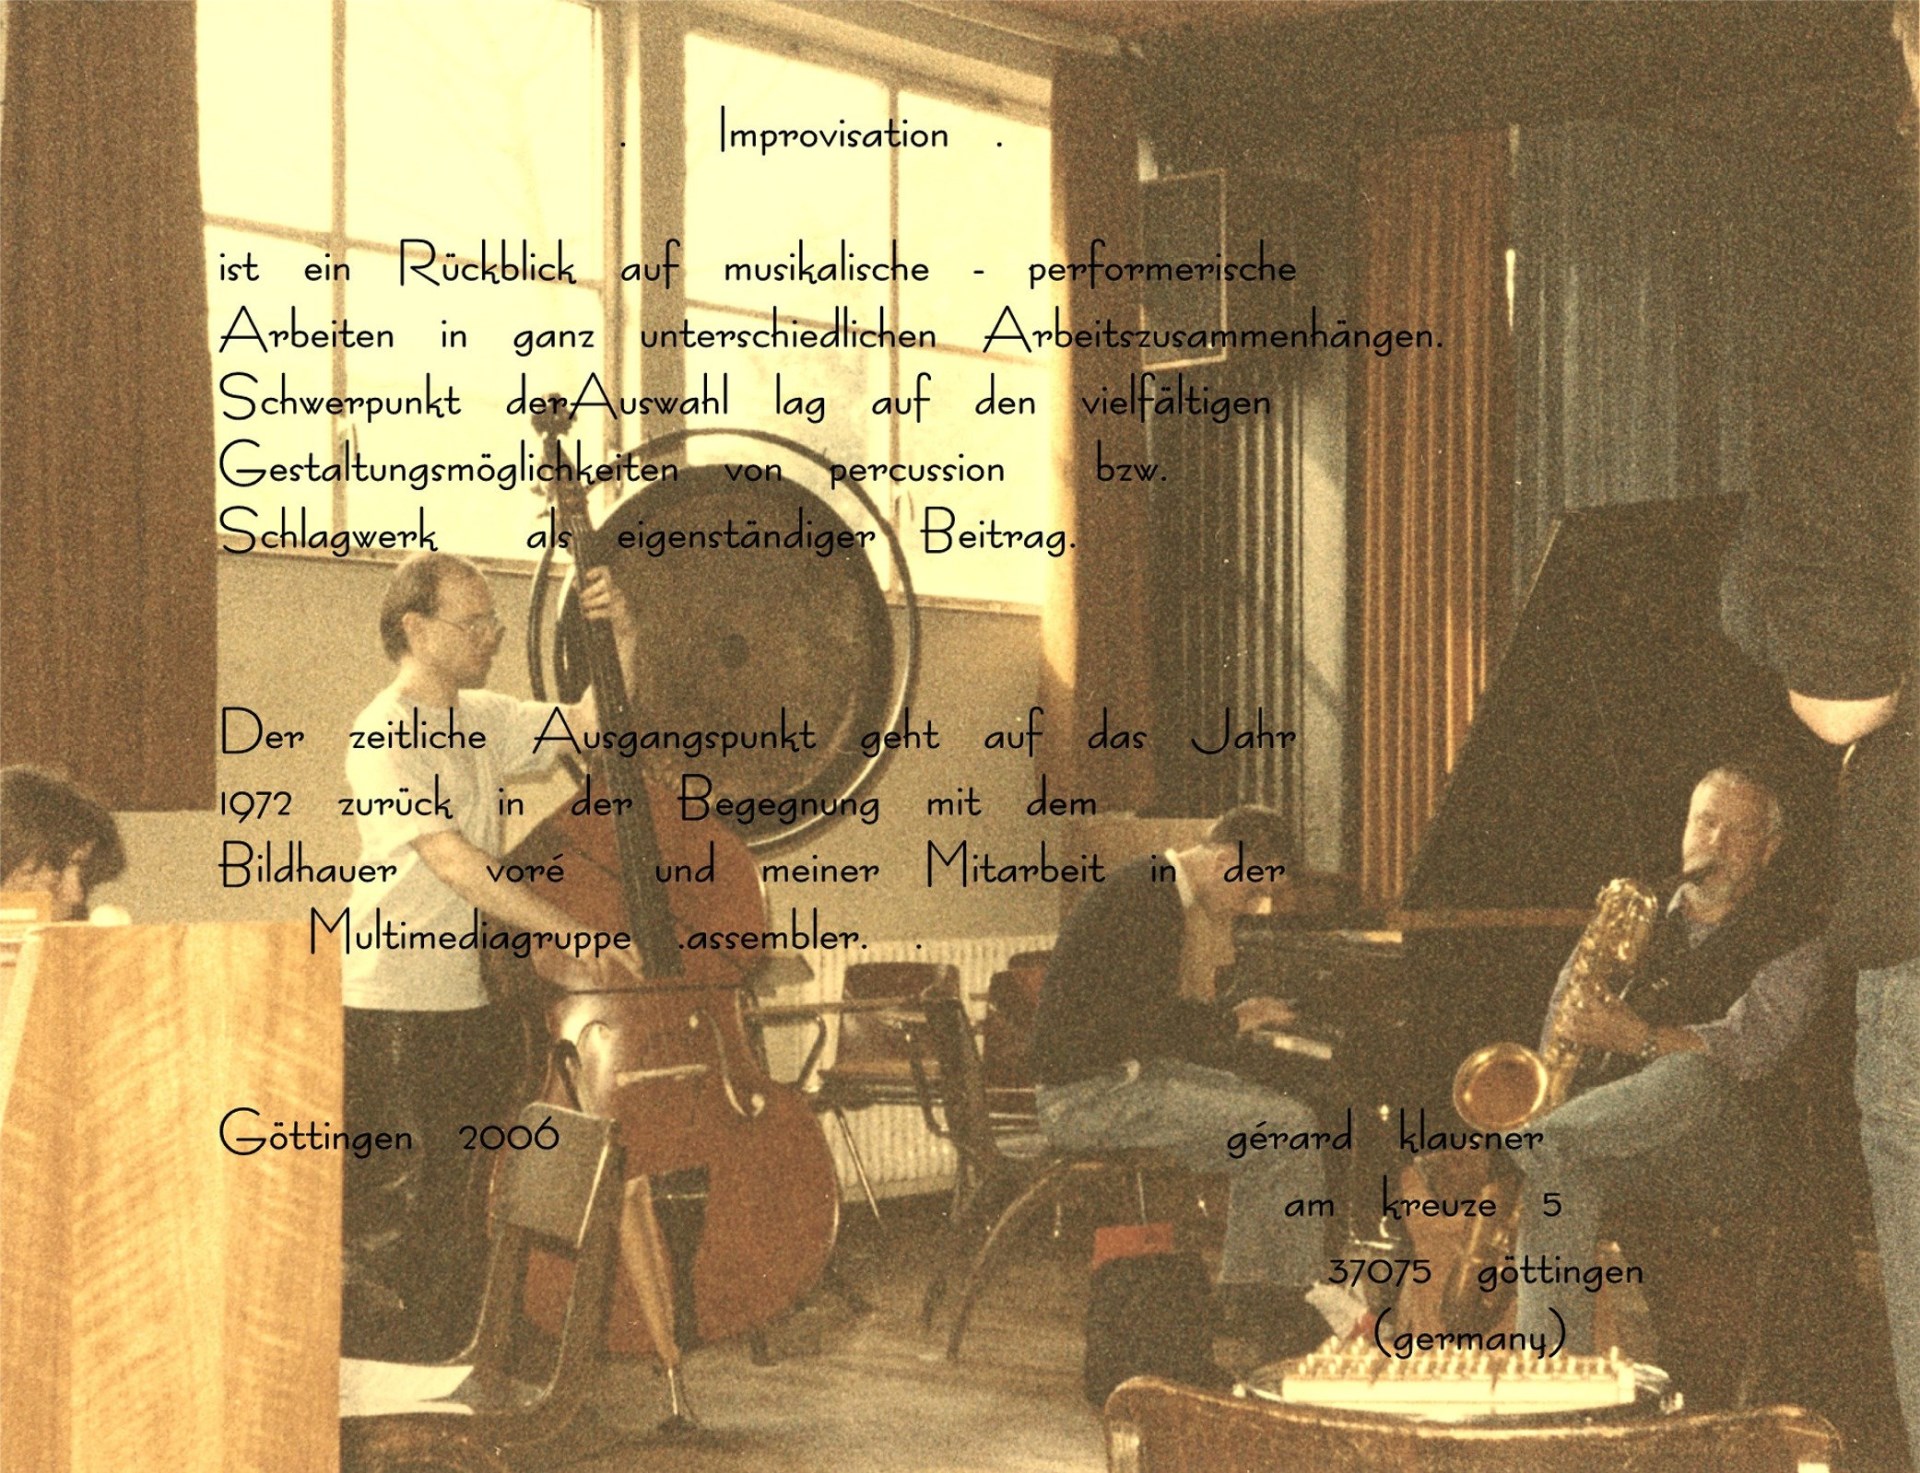 . Improvisation .
ist ein Rückblick auf musikalische - performerische
Arbeiten in ganz unterschiedlichen Arbeitszusammenhängen.
Schwerpunkt derAuswahl lag auf den vielfältigen
Gestaltungsmöglichkeiten von percussion bzw.
Schlagwerk als eigenständiger Beitrag.
Der zeitliche Ausgangspunkt geht auf das Jahr
1972 zurück in der Begegnung mit dem
Bildhauer voré und meiner Mitarbeit in der
Multimediagruppe .assembler. .
Göttingen 2006
gérard klausner
am kreuze 5
37075 göttingen
(germany)